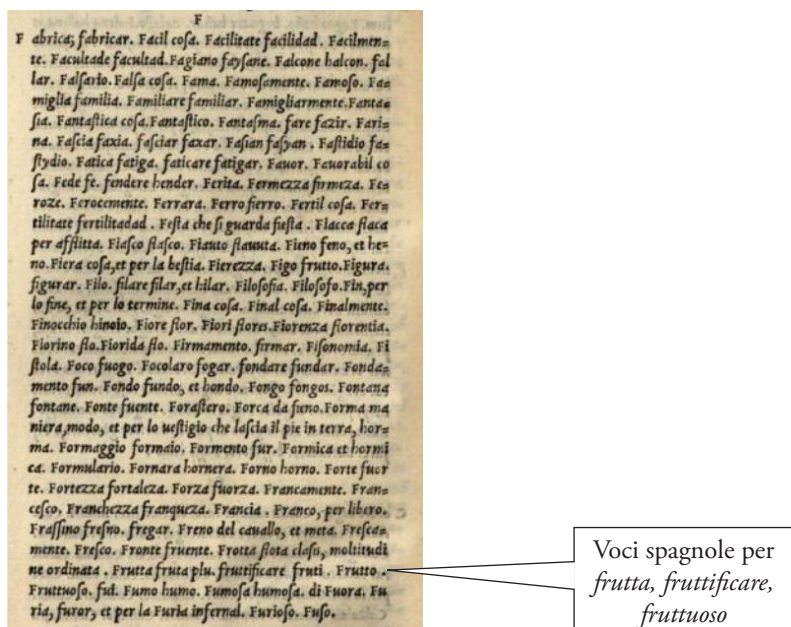 F
F abrica, fabricar. Facil coſa. Facilitate facilidad. Facilmen=
te. Facultade facultad. Fagiano fayſane. Falcone halcon. fal
lar. Falſario. Falſa coſa. Fama. Famoſamente. Famoſo. Fa=
miglia familia. Familiare familiar. Famigliarmente. Fanta=
ſia. Fantaſtica coſa. Fantaſtico. Fantaſma. fare fazir. Fari=
na. Faſcia faxia. faſciar faxar. Faſian faſyan. Faſtidio fa=
ſtydio. Fatica fatiga. faticare fatigar. Fauor. Fauorabil co
ſa. Fede fe. fendere hender. Ferita. Fermezza firmeza. Fe=
roze. Ferocemente. Ferrara. Ferro fierro. Fertil coſa. Fer=
tilitate fertilitadad. Feſta che ſi guarda fieſta. Fiacca flaca
per afflitta. Fiaſco flaſco. Fiauto flauuta. Fieno feno, et he=
no. Fiera coſa, et per la beſtia. Fierezza. Figo frutto. Figura.
figurar. Filo. filare filar, et hilar. Filoſofia. Filoſofo. Fin, per
lo fine, et per lo termine. Fina coſa. Final coſa. Finalmente.
Finocchio hinoio. Fiore flor. Fiori flores. Fiorenza florentia.
Fiorino flo. Fiorida flo. Firmamento. firmar. Fiſonomia. Fi
ſtola. Foco fuogo. Focolaro fogar. fondare fundar. Fonda=
mento fun. Fondo fundo, et hondo. Fongo fongos. Fontana
fontane. Fonte fuente. Foraſtero. Forca da fieno. Forma ma
niera, modo, et per lo ueſtigio che laſcia il pie in terra, hor=
ma. Formaggio formaio. Formento fur. Formica et hormi
ca. Formulario. Fornara hornera. Forno horno. Forte fuer
te. Fortezza fortaleza. Forza fuorza. Francamente. Fran=
ceſco. Franchezza franqueza. Francia. Franco, per libero.
Fraſſino freſno. fregar. Freno del cauallo, et meta. Freſca=
mente. Freſco. Fronte fruente. Frotta flota claſis, moltitudi
ne ordinata. Frutta fruta plu. fruttificare fruti. Frutto.
Fruttuoſo. fui. Fumo humo. Fumoſa humoſa. di Fuora. Fu
ria, furor, et per la Furia infernal. Furioſo. Fuſo.
Voci spagnole per
frutta, fruttificare,
fruttuoso